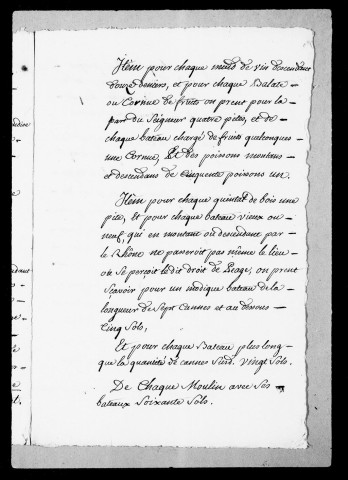 Item pour chaque muid de vin descendant
douze deniers, et pour chaque Balate
ou Cornue de fruits on prent pour la
part du Seigneur quatre pites, et de
chaque bateau chargé de fruits quelconques
une Cornue, Et des poissons montans
et descendans de cinquante poissons un.
Item pour chaque quintal de bois une
pite, et pour chaque bateau vieux ou
neuf, qui en montant ou descendant par
le Rhône ne passeroit pas même le lieu
où se perçoit ledit droit de Peage, on prent
sçavoir pour un modique bateau de la
longueur de sept cannes et au dessous
cinq sols,
Et pour chaque Bateau plus long
que la quantité de cannes susd. vingt sols.
De Chaque Moulin avec ses
bateaux soixante sols.